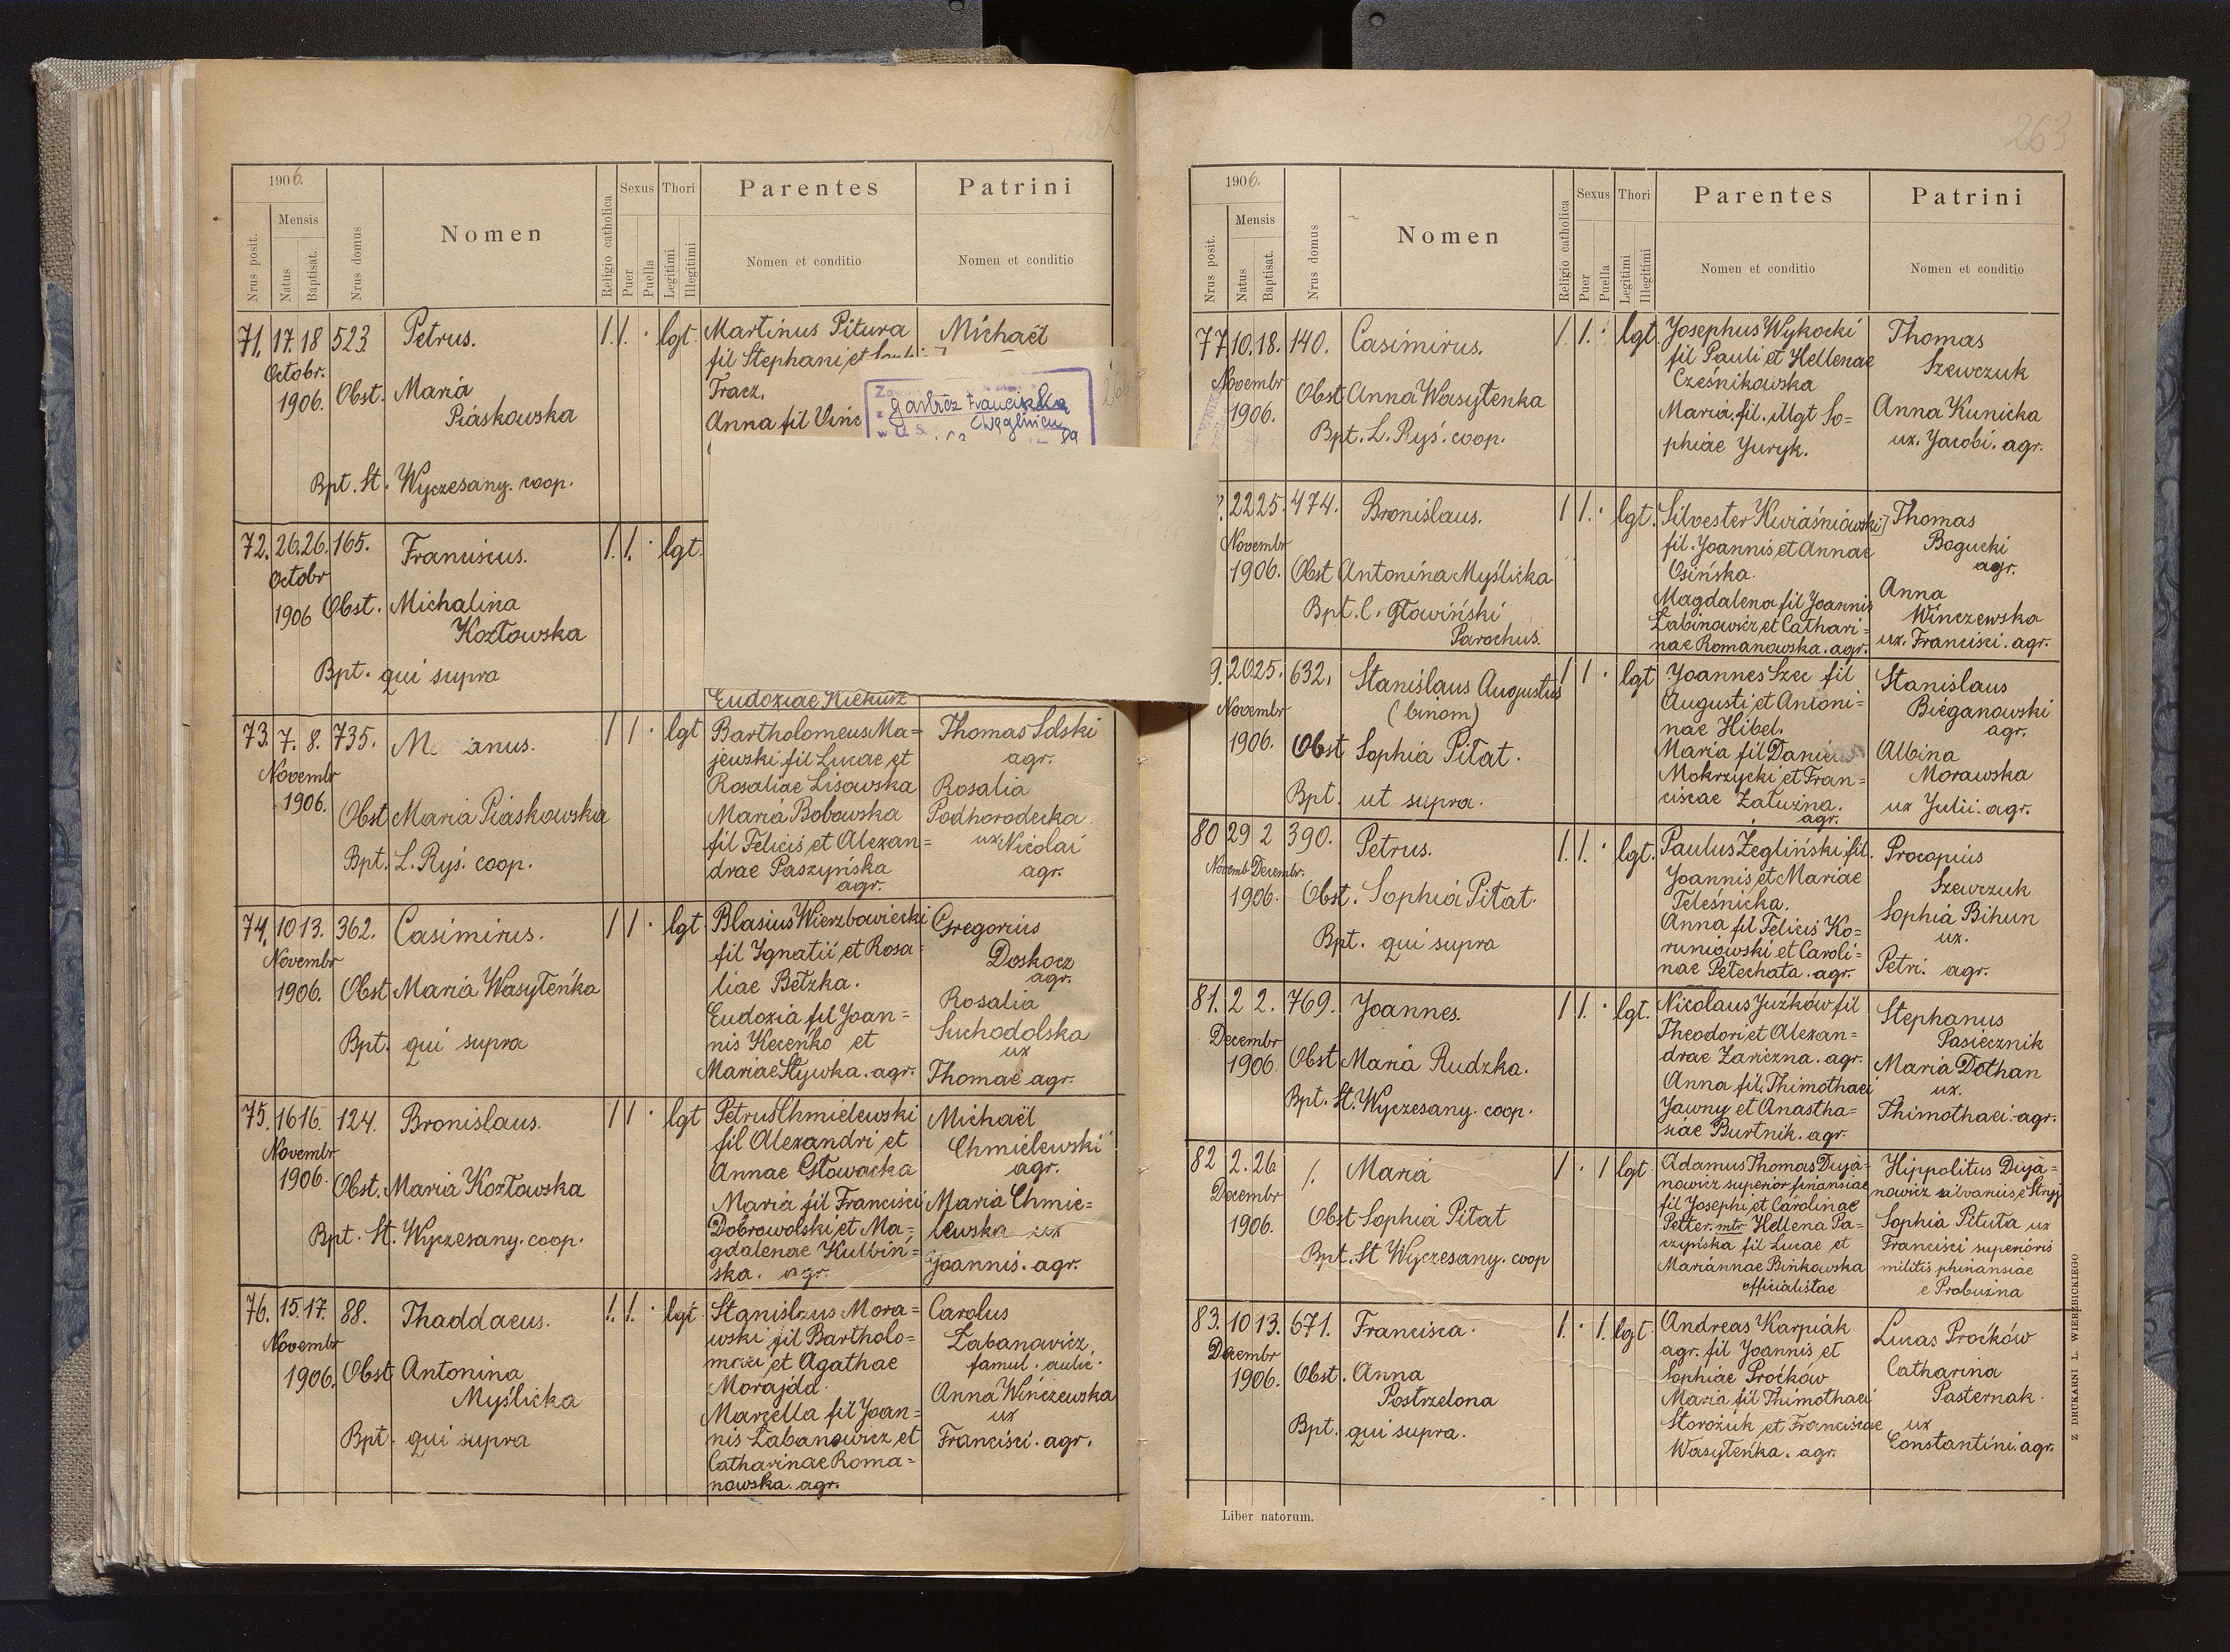 262
1906.
Nrus posit.
Mensis
Natus
Baptisat.
Nrus domus
Nomen
Religio catholica
Sexus
Puer
Puella
Thori
Legitimi
Illegitimi
Parentes
Nomen et conditio
Patrini
Nomen et conditio
71. 17. 18 523 Petrus. 1. 1. · lgt.
Octobr.
1906. Obst. Maria
Piaskowska
Bpt. St. Wyczesany. coop.
Martinus Pitura
fil Stephani et
Tracz.
Anna fil Vinc
Michaël
Franciszka
72. 26. 26. 165. Franciscus. 1. 1. · lgt.
Octobr
1906 Obst. Michalina
Kozłowska
Bpt. qui supra
Eudoxiae Kiekurz
73. 7. 8. 735. M anus. 1 1 · lgt
Novembr
1906. Obst Maria Piaskowska
Bpt. L. Ryś. coop.
Bartholomeus Ma=
jewski fil Lucae et
Rosaliae Lisowska
Maria Bobowska
fil Felicis et Alexan=
drae Paszyńska
agr.
Thomas Solski
agr.
Rosalia
Podhorodecka.
ux. Nicolai
agr.
74. 10 13. 362. Casimirus. 1 1 · lgt
Novembr
1906. Obst Maria Wasyleńka
Bpt. qui supra
Blasius Wierzbowiecki
fil Ignatii et Rosa=
liae Bełzka.
Eudoxia fil Joan=
nis Keceńko et
Mariae Stywka. agr.
Gregorius
Doskocz
agr.
Rosalia
Suchodolska
ux
Thomae agr.
75. 16 16. 124. Bronislaus. 1 1 · lgt
Novembr
1906. Obst. Maria Kozłowska
Bpt. St. Wyczesany. coop.
Petrus Chmielewski
fil Alexandri et
Annae Głowacka
Maria fil Francisci
Dobrowolski et Ma=
gdalenae Kulbiń=
ska. agr.
Michaël
Chmielewski
agr.
Maria Chmie=
lewska ux
Joannis. agr.
76. 15. 17. 88. Thaddaeus. 1. 1. · lgt
Novembr
1906. Obst Antonina
Myślicka
Bpt. qui supra
Stanislaus Mora=
wski fil Bartholo=
maei et Agathae
Morajda.
Marzella fil Joan=
nis Łabanowicz et
Catharinae Roma=
nowska. agr.
Carolus
Łabanowicz
famul. aulic.
Anna Wińczewska
ux
Francisci. agr.
263
1906.
Nrus posit.
Mensis
Natus
Baptisat.
Nrus domus
Nomen
Religio catholica
Sexus
Puer
Puella
Thori
Legitimi
Illegitimi
Parentes
Nomen et conditio
Patrini
Nomen et conditio
77 10. 18. 140. Casimirus. 1. 1. · lgt
Novembr
1906. Obst Anna Wasylenka
Bpt. L. Ryś. coop.
Josephus Wykocki
fil Pauli et Hellenae
Cześnikowska
Maria. fil. illgt So=
phiae Juryk.
Thomas
Szewczuk
Anna Kunicka
ux. Jacobi. agr.
22 25. 474. Bronislaus. 1 1. · lgt.
Novembr
1906. Obst Antonina Myślicka
Bpt. C. Głowiński
Parochus.
Silvester Kwiaśniowski
fil. Joannis et Annae
Osińska.
Magdalena fil Joannis
Łabinowicz et Cathari=
nae Romanowska. agr.
Thomas
Bogucki
agr.
Anna
Winczewska
ux. Francisci. agr.
9. 20 25. 632. Stanislaus Augustus 1 1 · lgt
Novembr (binom)
1906. Obst Sophia Pitat.
Bpt. ut supra.
Joannes Szec fil
Augusti et Antoni=
nae Hibel.
Maria fil
Mokrzycki et Fran=
ciscae Załuzna.
agr.
Stanislaus
Bieganowski
agr.
Albina
Morawska
ux Julii. agr.
80 29 2 390. Petrus. 1. 1. · lgt.
Novemb Decembr.
1906. Obst. Sophia Pitat.
Bpt. qui supra
Paulus Żegliński fil.
Joannis et Mariae
Teleśnicka.
Anna fil Felicis Ko=
runiowski et Caroli=
nae Petechata. agr.
Procopius
Szewczuk
Sophia Bihun
ux.
Petri. agr.
81. 2 2. 769. Joannes. 1 1. · lgt.
Decembr
1906 Obst Maria Rudzka.
Bpt. St. Wyczesany. coop.
Nicolaus Juźków fil
Theodori et Alexan=
drae Zariczna. agr.
Anna fil. Thimothaei
Jawny et Anastha=
siae Burtnik. agr.
Stephanus
Pasiecznik
Maria Dothan
ux.
Thimothaei. agr.
82 2. 26 1. Maria 1 · 1 lgt
Decembr
1906. Obst Sophia Pitat
Bpt. St Wyczesany. coop
Adamus Thomas Dujà=
nowicz superior finansiae
fil Josephi et Carolinae
Petter. mtr Hellena Pa=
czyńska fil Lucae et
Mariannae Bińkowska
officialistae
Hippolitus Dujà=
nowicz silvarius e Stryj
Sophia Pituta ux
Francisci superioris
militis phinansiae
e Probuzna
83. 10 13. 671. Francisca. 1. · 1. lgt
Decembr
1906. Obst. Anna
Postrzelona
Bpt. qui supra.
Andreas Karpiak
agr. fil Joannis et
Sophiae Proćków
Maria fil Thimothaei
Storożuk et Franciscae
Wasyleńka. agr.
Lucas Proćków
Catharina
Pasternak.
ux
Constantini agr.
Liber natorum.
Z DRUKARNI L. WIERZBICKIEGO